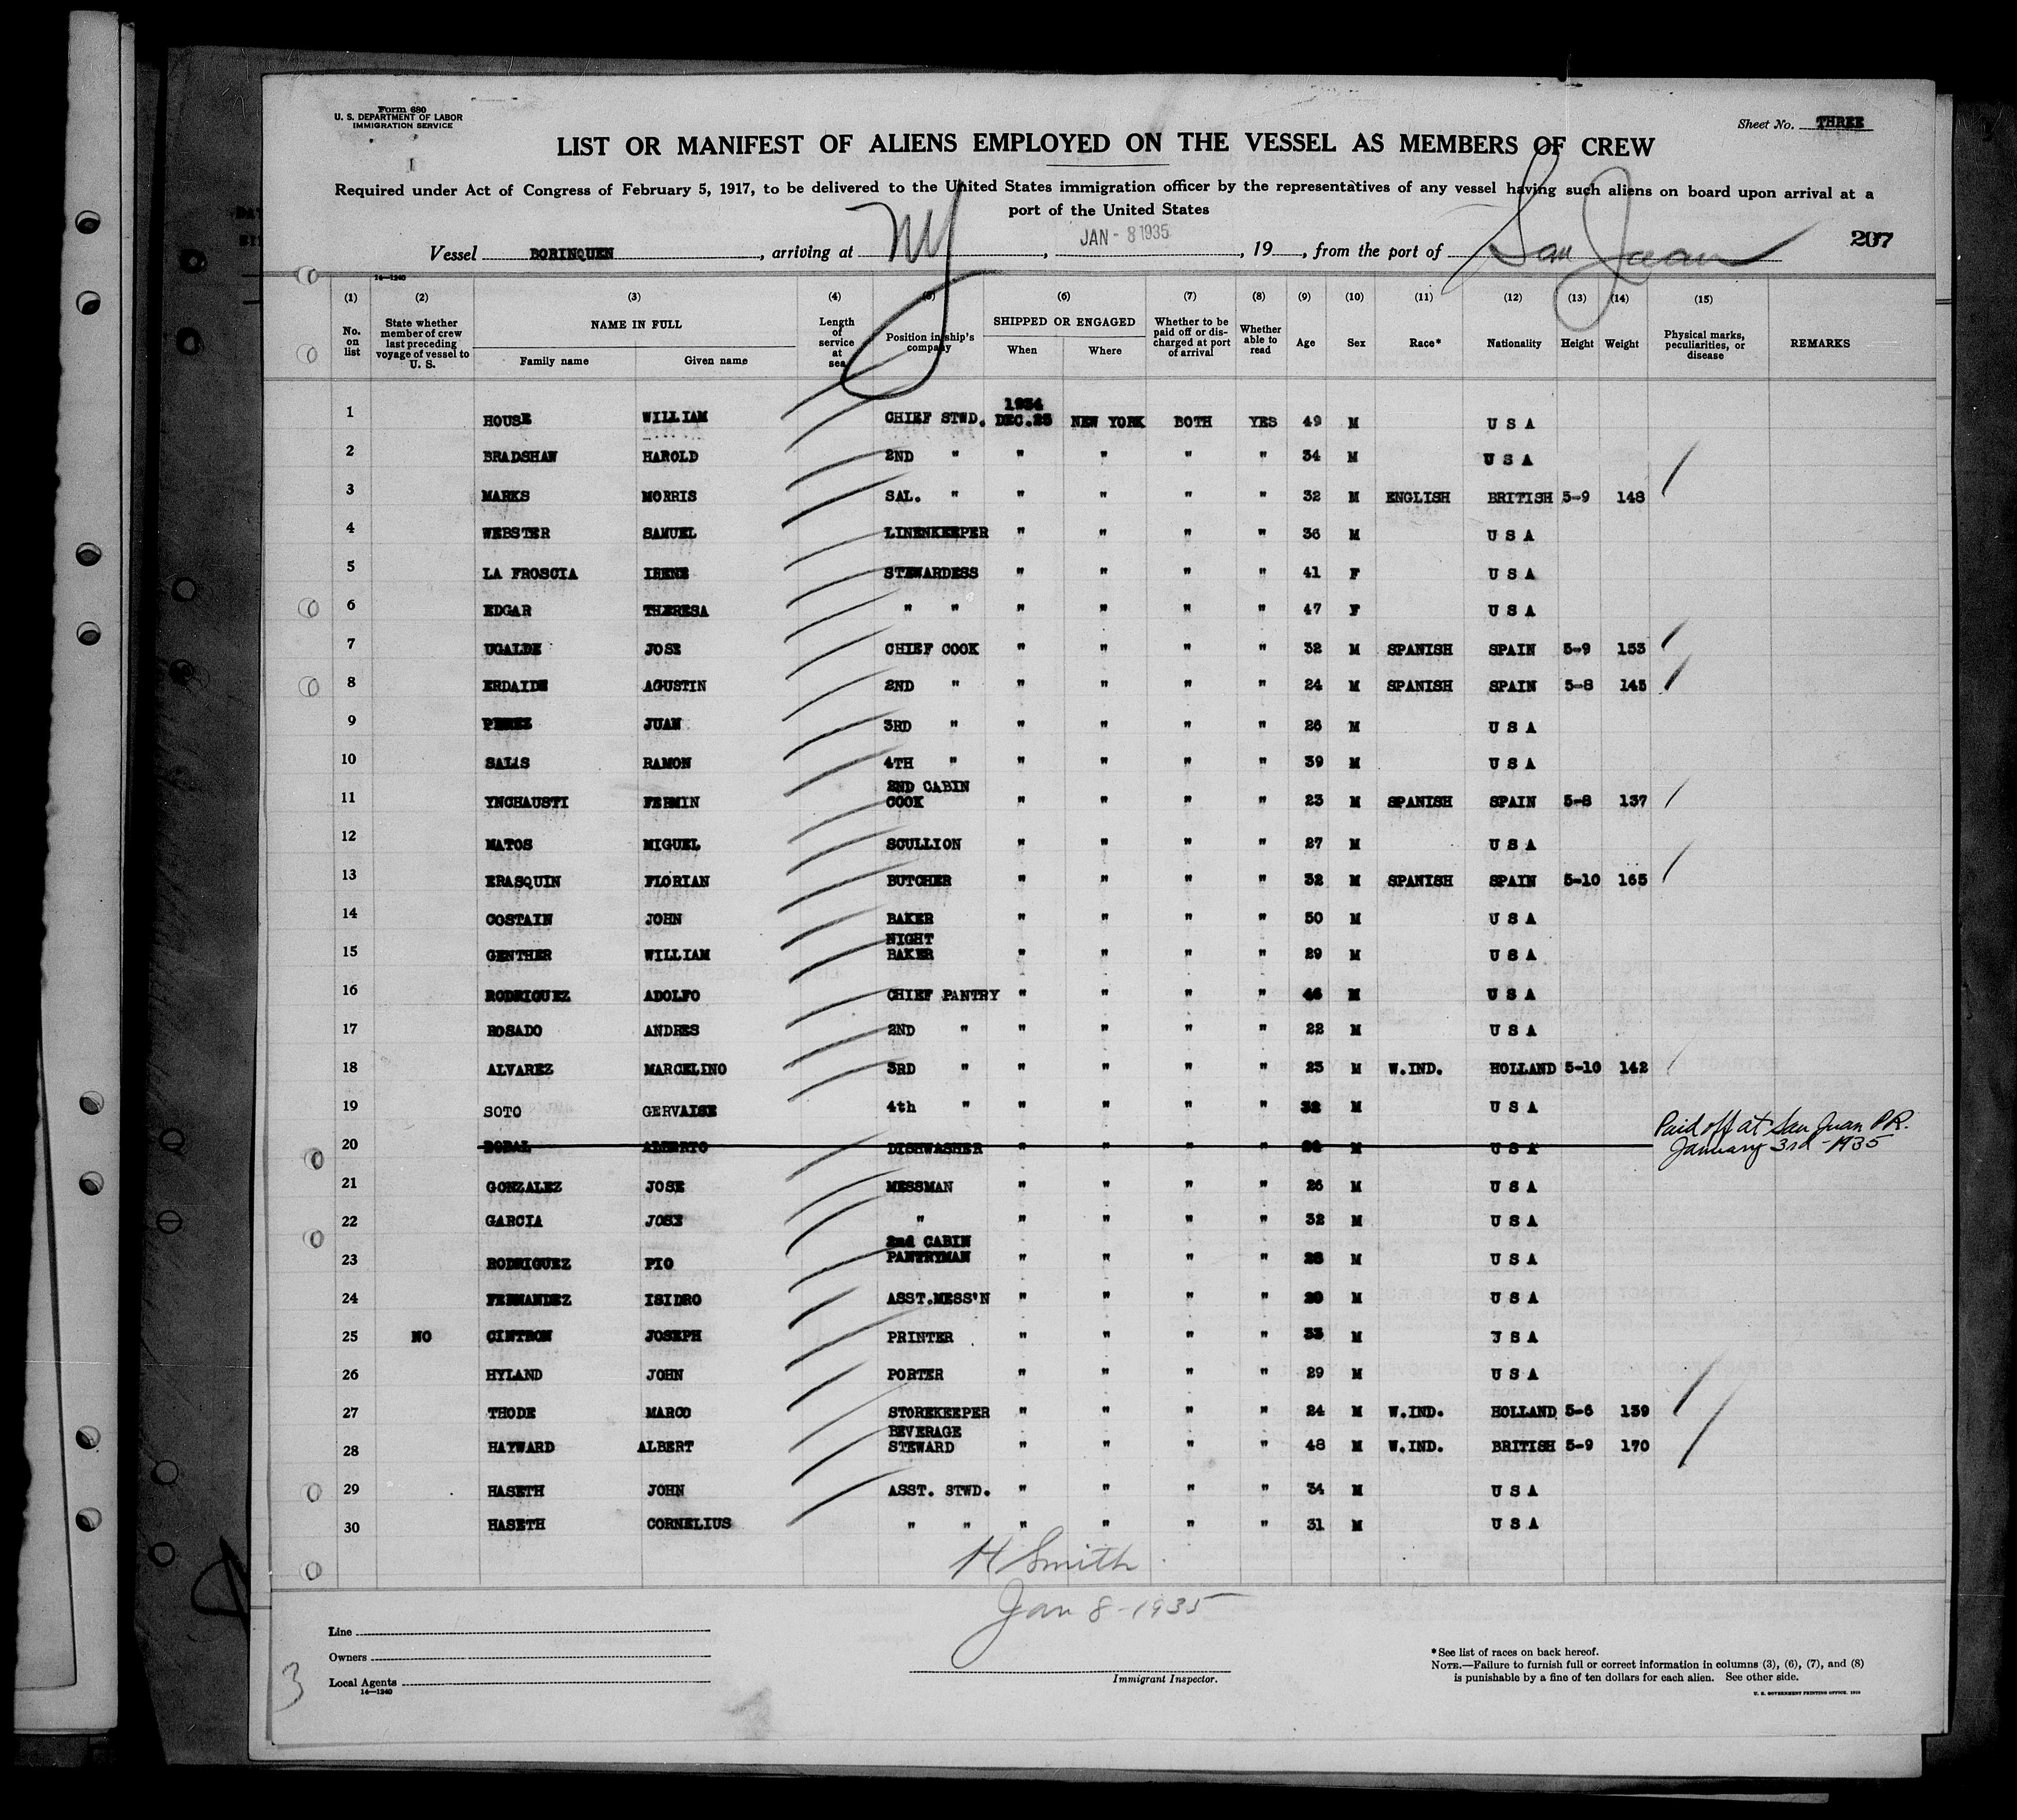 Form 680
U. S. DEPARTMENT OF LABOR
IMMIGRATION SERVICE
Sheet No. THREE
LIST OR MANIFEST OF ALIENS EMPLOYED ON THE VESSEL AS MEMBERS OF CREW
Required under Act of Congress of February 5, 1917, to be delivered to the United States immigration officer by the representatives of any vessel having such aliens on board upon arrival at a
port of the United States
Vessel BORINQUEN, arriving at NY, JAN - 8 1935, 19, from the port of San Juan
207
14—1240
(1) (2) (3) (4) (5) (6) (7) (8) (9) (10) (11) (12) (13) (14) (15)
No. on list
State whether member of crew last preceding voyage of vessel to U. S.
NAME IN FULL
Family name Given name
Length of service at sea
Position in ship's company
SHIPPED OR ENGAGED
When Where
Whether to be paid off or discharged at port of arrival
Whether able to read
Age Sex Race* Nationality Height Weight
Physical marks, peculiarities, or disease
REMARKS
1934
1 HOUSE WILLIAM CHIEF STWD. DEC.25 NEW YORK BOTH YES 49 M U S A
2 BRADSHAW HAROLD 2ND " " " " " 34 M U S A
3 MARKS MORRIS SAL. " " " " " 32 M ENGLISH BRITISH 5-9 148
4 WEBSTER SAMUEL LINENKEEPER " " " " 36 M U S A
5 LA FROSCIA IRENE STEWARDESS " " " " 41 F U S A
6 EDGAR THERESA " " " " " " 47 F U S A
7 UGALDE JOSE CHIEF COOK " " " " 32 M SPANISH SPAIN 5-9 153
8 ERDAIDE AGUSTIN 2ND " " " " " 24 M SPANISH SPAIN 5-8 145
9 PEREZ JUAN 3RD " " " " " 26 M U S A
10 SALIS RAMON 4TH " " " " " 39 M U S A
2ND CABIN
11 YNCHAUSTI FERMIN COOK " " " " 23 M SPANISH SPAIN 5-8 137
12 MATOS MIGUEL SCULLION " " " " 27 M U S A
13 ERASQUIN FLORIAN BUTCHER " " " " 32 M SPANISH SPAIN 5-10 165
14 COSTAIN JOHN BAKER " " " " 50 M U S A
NIGHT
15 GENTHER WILLIAM BAKER " " " " 29 M U S A
16 RODRIGUEZ ADOLFO CHIEF PANTRY " " " " 46 M U S A
17 ROSADO ANDRES 2ND " " " " " 22 M U S A
18 ALVAREZ MARCELINO 3RD " " " " " 23 M W.IND. HOLLAND 5-10 142
19 SOTO GERVAISE 4th " " " " " 32 M U S A
20 ALBERTO DISHWASHER " " " " M U S A Paid off at San Juan P.R.
January 3rd - 1935
21 GONZALEZ JOSE MESSMAN " " " " 26 M U S A
22 GARCIA JOSE " " " " " 32 M U S A
2nd CABIN
23 RODRIGUEZ PIO PANTRYMAN " " " " 28 M U S A
24 FERNANDEZ ISIDRO ASST.MESS'N " " " " 20 M U S A
25 NO CINTRON JOSEPH PRINTER " " " " 33 M U S A
26 HYLAND JOHN PORTER " " " " 29 M U S A
27 THODE MARCO STOREKEEPER " " " " 24 M W.IND. HOLLAND 5-6 139
BEVERAGE
28 HAYWARD ALBERT STEWARD " " " " 48 M W.IND. BRITISH 5-9 170
29 HASETH JOHN ASST. STWD. " " " " 34 M U S A
30 HASETH CORNELIUS " " " " " " 31 M U S A
H Smith
Jan 8 - 1935
Immigrant Inspector.
Line
Owners
Local Agents
14—1240
3
*See list of races on back hereof.
NOTE.—Failure to furnish full or correct information in columns (3), (6), (7), and (8)
is punishable by a fine of ten dollars for each alien. See other side.
U. S. GOVERNMENT PRINTING OFFICE. 1929